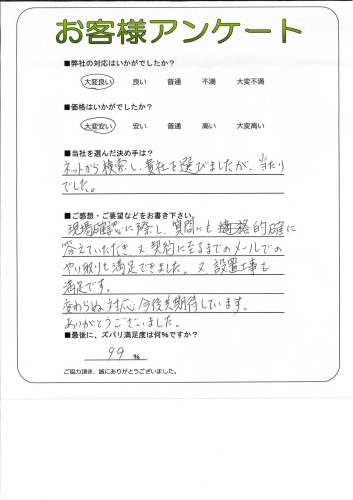 お客様アンケート
■弊社の対応はいかがでしたか？
大変良い 良い 普通 不満 大変不満
■価格はいかがでしたか？
大変安い 安い 普通 高い 大変高い
■当社を選んだ決め手は？
ネットから検索し、貴社を選びましたが、当たり
でした。
■ご感想・ご要望などをお書き下さい。
現場確認に際し、質問にも適格的確に
答えていただき、又、契約に至るまでのメールでの
やり取りも満足できました。又、設置工事も
満足です。
変わらぬ対応、今後共期待しています。
ありがとうございました。
■最後に、ズバリ満足度は何%ですか？
99 %
ご協力頂き、誠にありがとうございました。